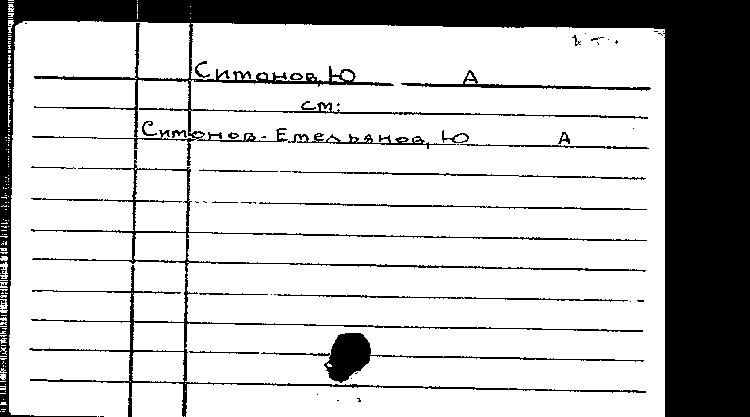 Симонов, Ю А
см:
Симонов-Емельянов, Ю А